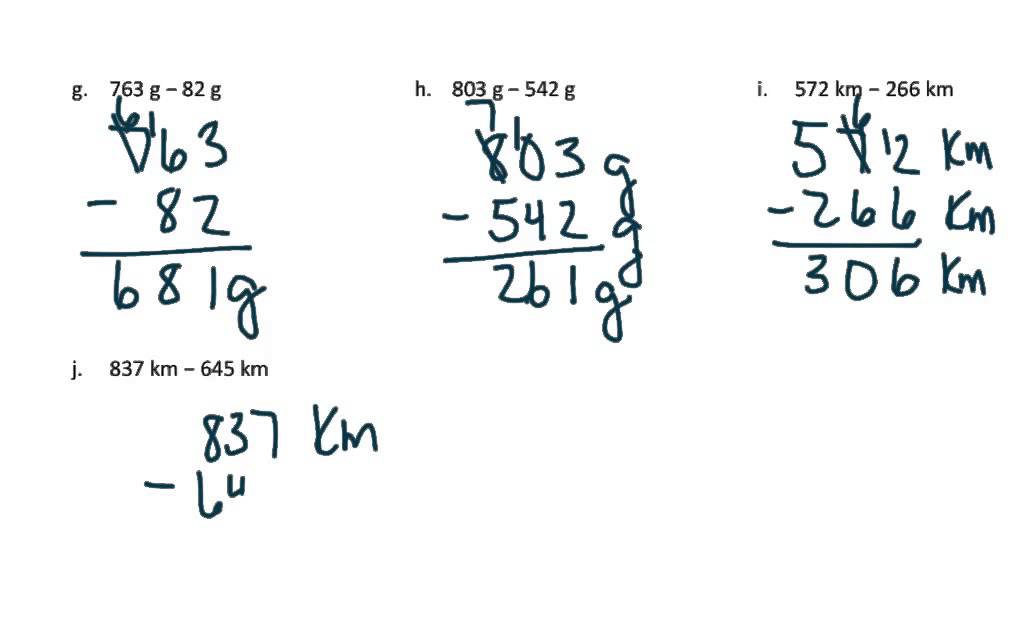 g. 763 g – 82 g
6 1
763
- 82
681g
h. 803 g – 542 g
7 1
803 g
- 542 g
261g
i. 572 km – 266 km
6
5712 Km
- 266 Km
306 Km
j. 837 km – 645 km
837 Km
- 64